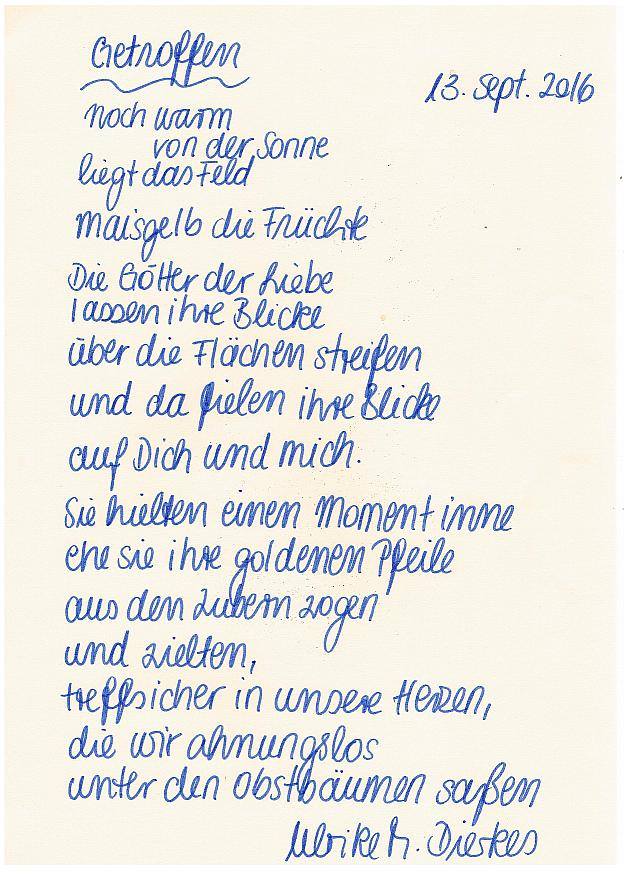 Getroffen
13. Sept. 2016
Noch warm
von der Sonne
liegt das Feld
Maisgelb die Früchte
Die Götter der Liebe
lassen ihre Blicke
über die Flächen streifen
und da fielen ihre Blicke
auf Dich und mich.
Sie hielten einen Moment inne
ehe sie ihre goldenen Pfeile
aus den Zubern zogen
und zielten,
treffsicher in unsere Herzen,
die wir ahnungslos
unter den Obstbäumen saßen
Ulrike M. Dierkes